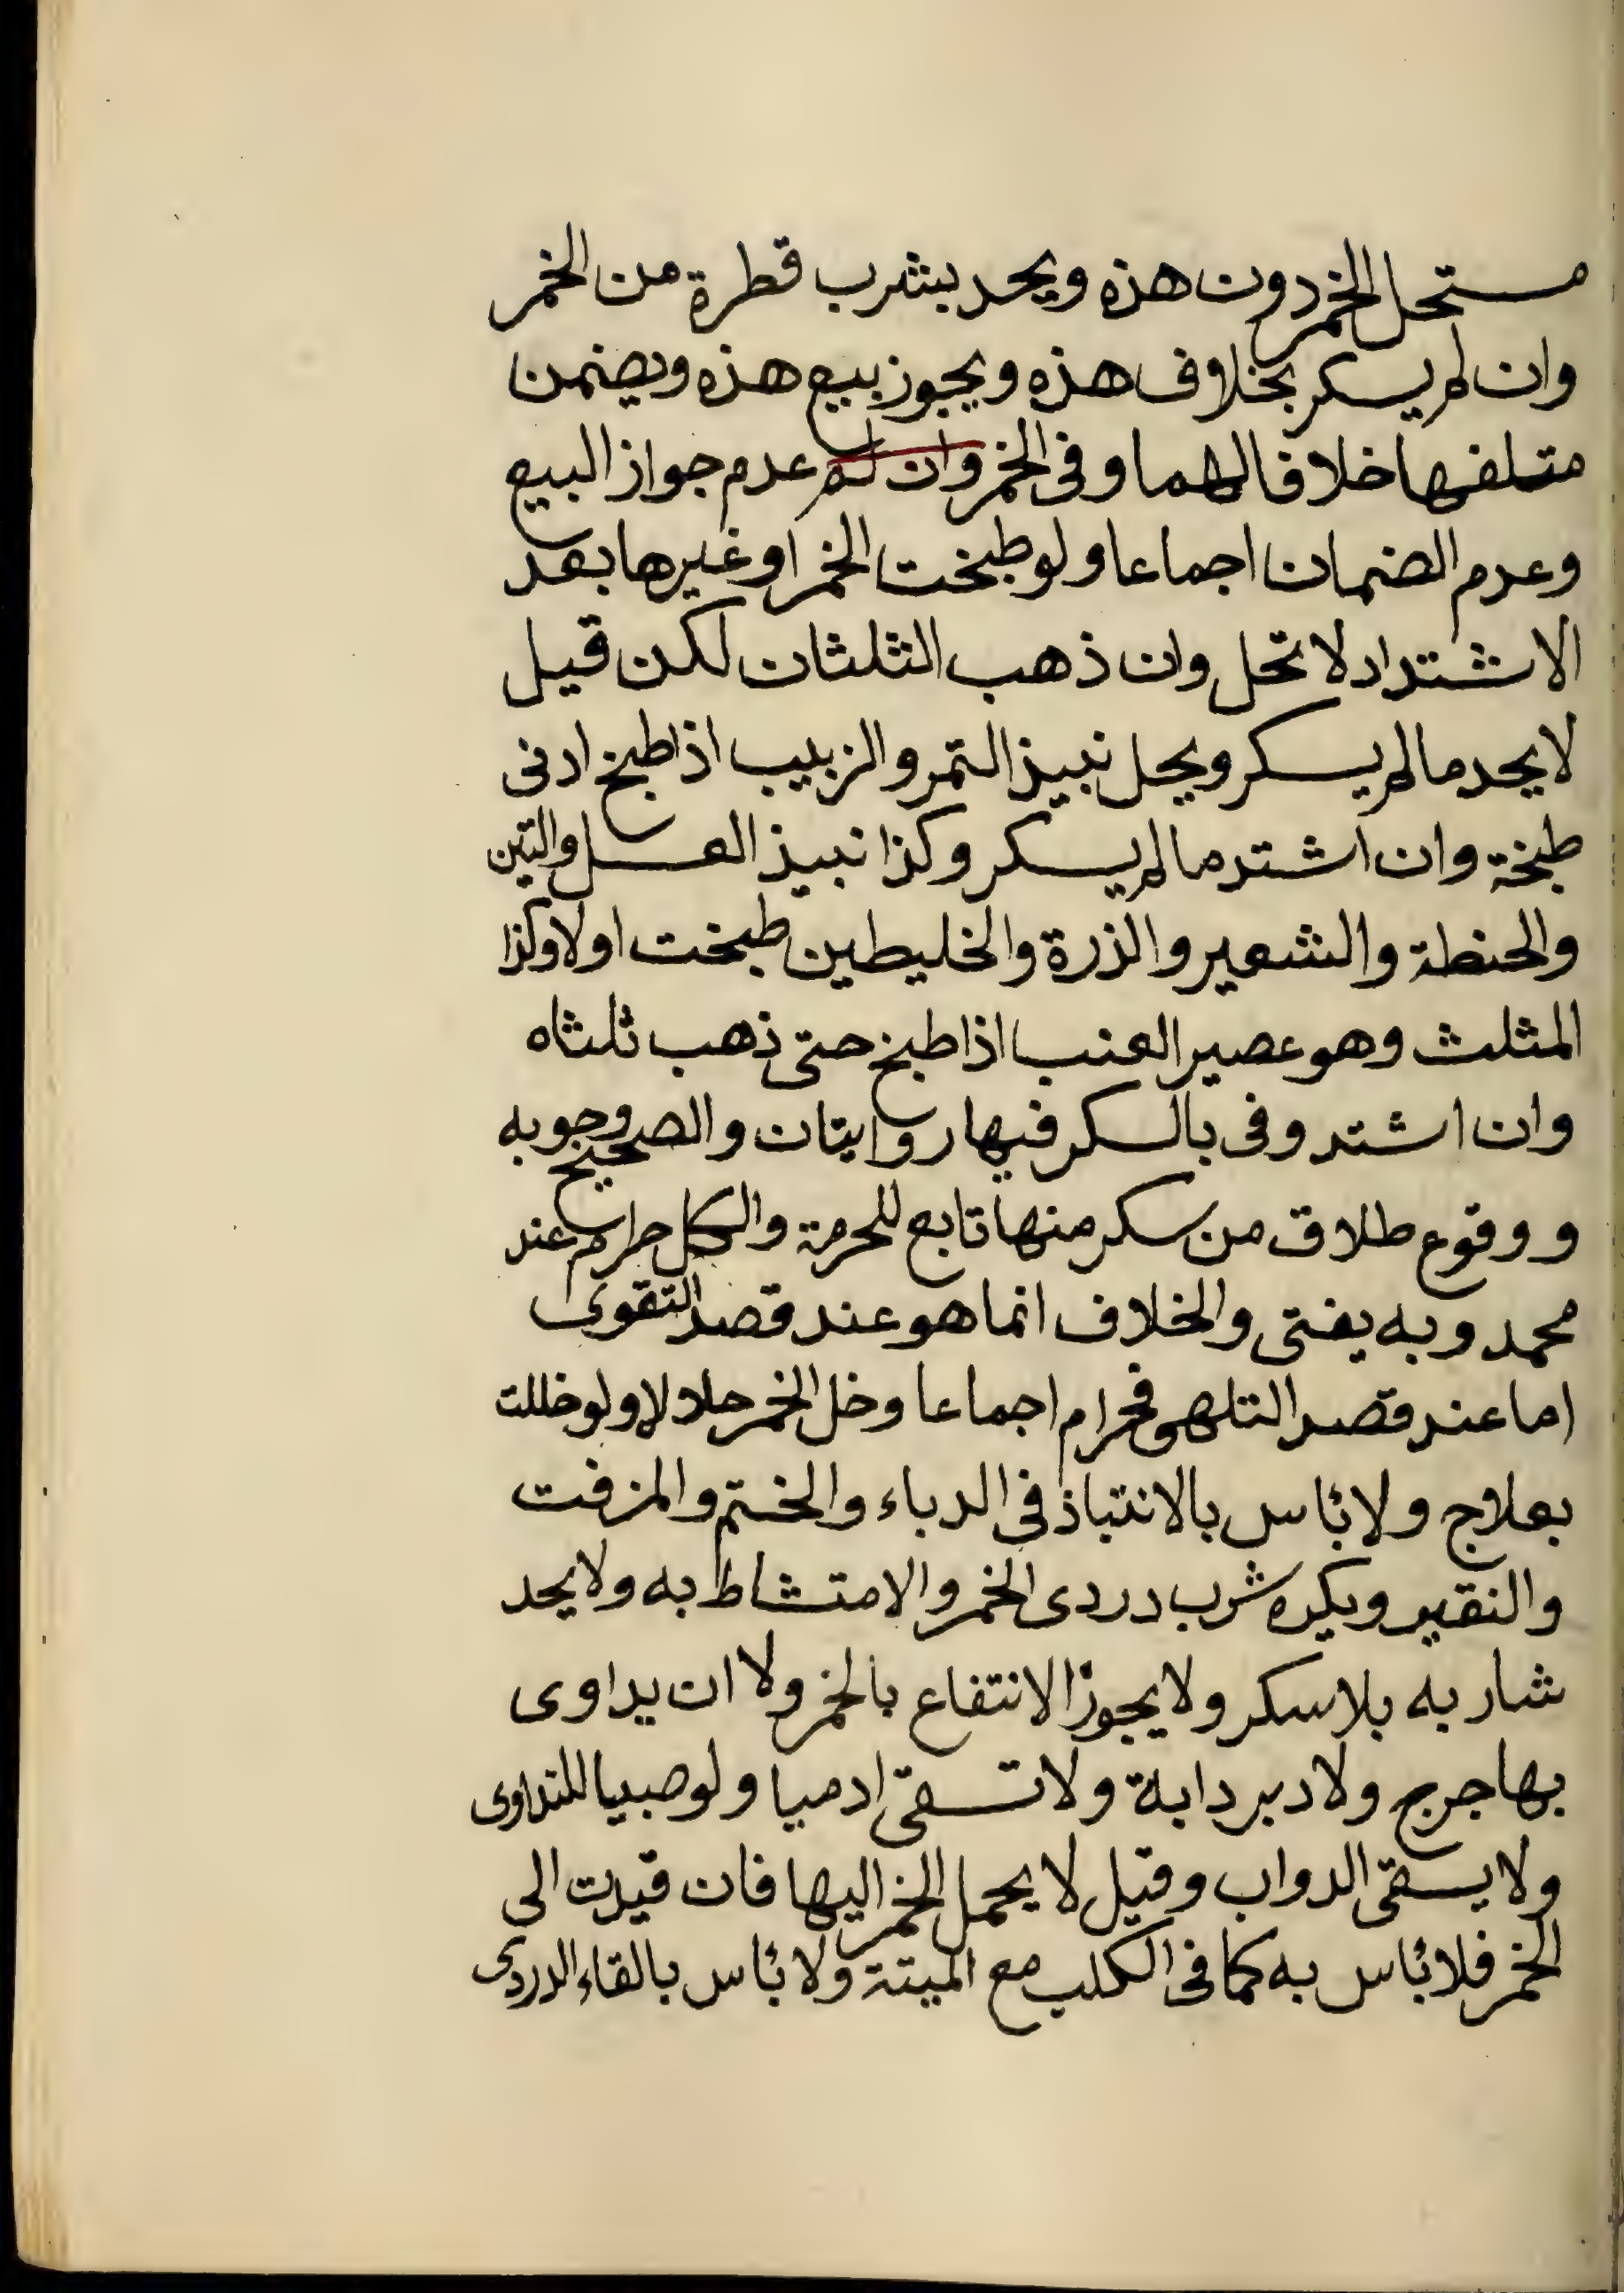 مستحل الخمر دون هذه ويحد بشرب قطرة من الخمر
وان لم يسكر بخلاف هذه ويجوز بيع هذه ويضمن
متلفها خلافا لهما وفى الخمر وان لم عدم جواز البيع
وعدم الضمان اجماعا ولو طبخت الخمر او غيرها بعد
الاشتداد لا تحل وان ذهب الثلثان لكن قيل
لا يحد ما لم يسكر ويحل نبيذ التمر والزبيب اذا طبخ ادنى
طبخة وان اشتد ما لم يسكر وكذا نبيذ العسل والتين
والحنطة والشعير والذرة والخليطين طبخت اولا وكذا
المثلث وهو عصير العنب اذا طبخ حتى ذهب ثلثاه
وان اشتد وفى بالسكر فيها روايتان والصحيح وجوبه
و وقوع طلاق من سكر منها تابع للحرمة والكل حرام عند
محمد وبه يفتى والخلاف انما هو عند قصد التقوى
اما عند قصد التلهى فحرام اجماعا وخل الخمر حلال لاولو خللت
بعلاج ولا بأس بالانتباذ فى الدباء والختم والمزفت
والنقير ويكره شرب دردى الخمر والامتشاط به ولا يحد
شاربه بلا سكر ولا يجوز الانتفاع بالخمر ولا ان يداوى
بها جرح ولا دبر دابة ولا تسقى ادميا ولو صبيا للتداوى
ولا يسقى الدواب وقيل لا يحمل الخمر اليها فان قيدت الى
الخمر فلا بأس به كما فى الكلب مع الميتة ولا بأس بالقاء الدردى